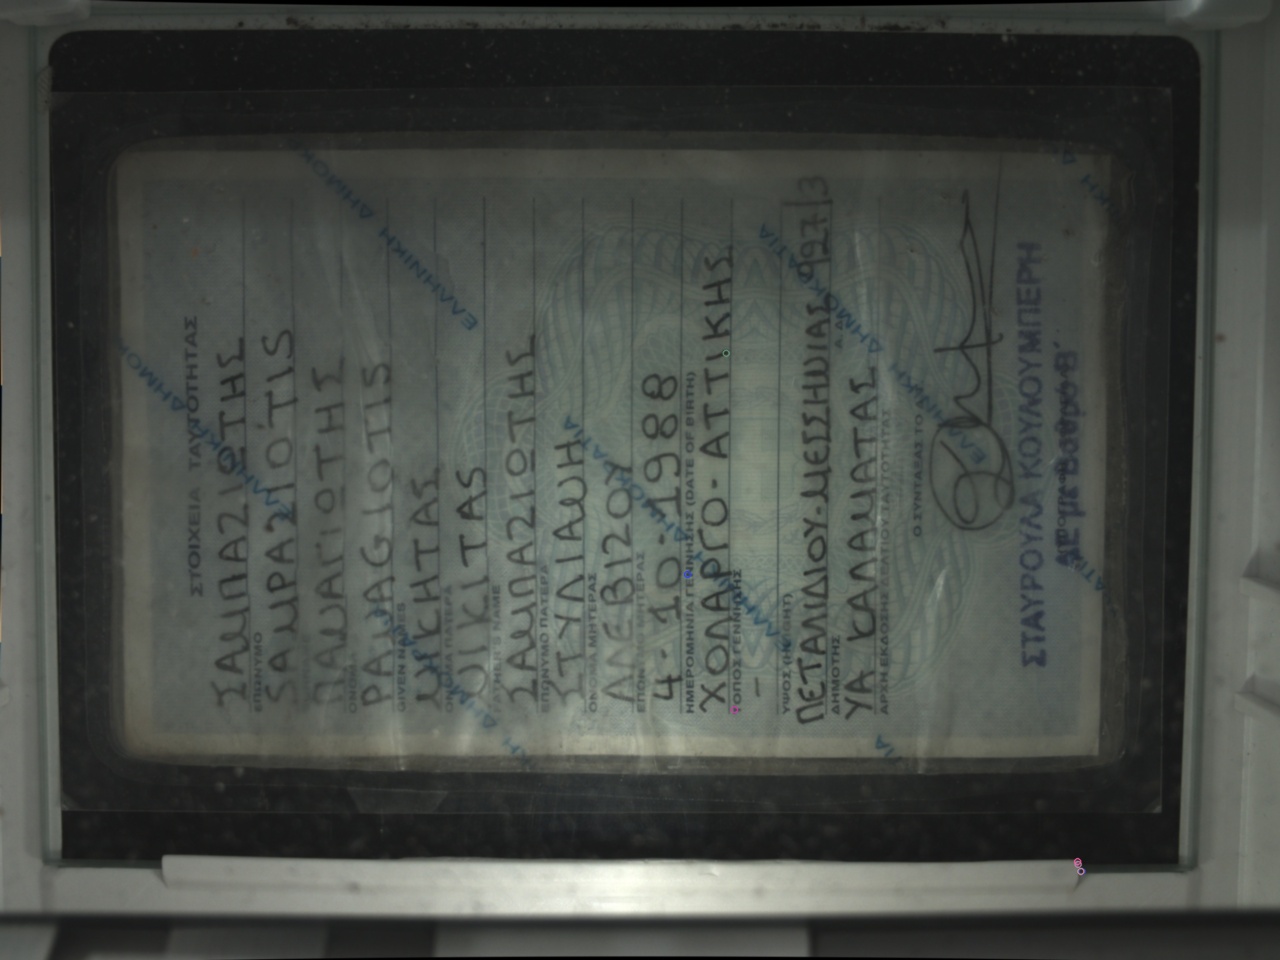 ΣΤΟΙΧΕΙΑ ΤΑΥΤΟΤΗΤΑΣ
ΣΑΜΠΑΖΙΩΤΗΣ
ΕΠΩΝΥΜΟ
SAMPAZIOTIS
ΠΑΝΑΓΙΩΤΗΣ
ΟΝΟΜΑ
PANAGIOTIS
GIVEN NAMES
ΝΙΚΗΤΑΣ
ΟΝΟΜΑ ΠΑΤΕΡΑ
NIKITAS
FATHER'S NAME
ΣΑΜΠΑΖΙΩΤΗΣ
ΕΠΩΝΥΜΟ ΠΑΤΕΡΑ
ΣΤΥΛΙΑΝΗ
ΟΝΟΜΑ ΜΗΤΕΡΑΣ
ΛΕΒΙΖΟΥ
ΕΠΩΝΥΜΟ ΜΗΤΕΡΑΣ
4-10-1988
ΗΜΕΡΟΜΗΝΙΑ ΓΕΝΝΗΣΗΣ (DATE OF BIRTH)
ΧΟΛΑΡΓΟ-ΑΤΤΙΚΗΣ
ΤΟΠΟΣ ΓΕΝΝΗΣΗΣ
-
ΥΨΟΣ (HEIGHT)
ΠΕΤΑΛΙΔΙΟΥ-ΜΕΣΣΗΝΙΑΣ 927/3
ΔΗΜΟΤΗΣ
ΥΑ ΚΑΛΑΜΑΤΑΣ
ΑΡΧΗ ΕΚΔΟΣΗΣ ΔΕΛΤΙΟΥ ΤΑΥΤΟΤΗΤΑΣ
Ο ΣΥΝΤΑΞΑΣ ΤΟ
ΣΤΑΥΡΟΥΛΑ ΚΟΥΛΟΥΜΠΕΡΗ
ΕΛΛΗΝΙΚΗ ΔΗΜΟΚΡΑΤΙΑ